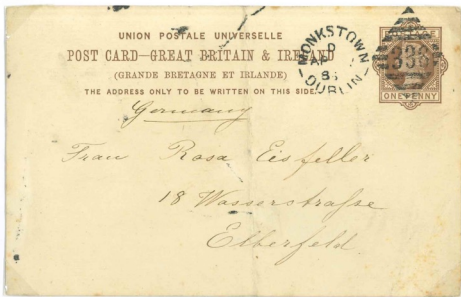 UNION POSTALE UNIVERSELLE
POST CARD—GREAT BRITAIN & IRELAND
(GRANDE BRETAGNE ET IRLANDE)
THE ADDRESS ONLY TO BE WRITTEN ON THIS SIDE.
MONKSTOWN
DUBLIN
ONE PENNY
Germany
Frau Rosa Eisfeller
18 Wasserstraße
Elberfeld.